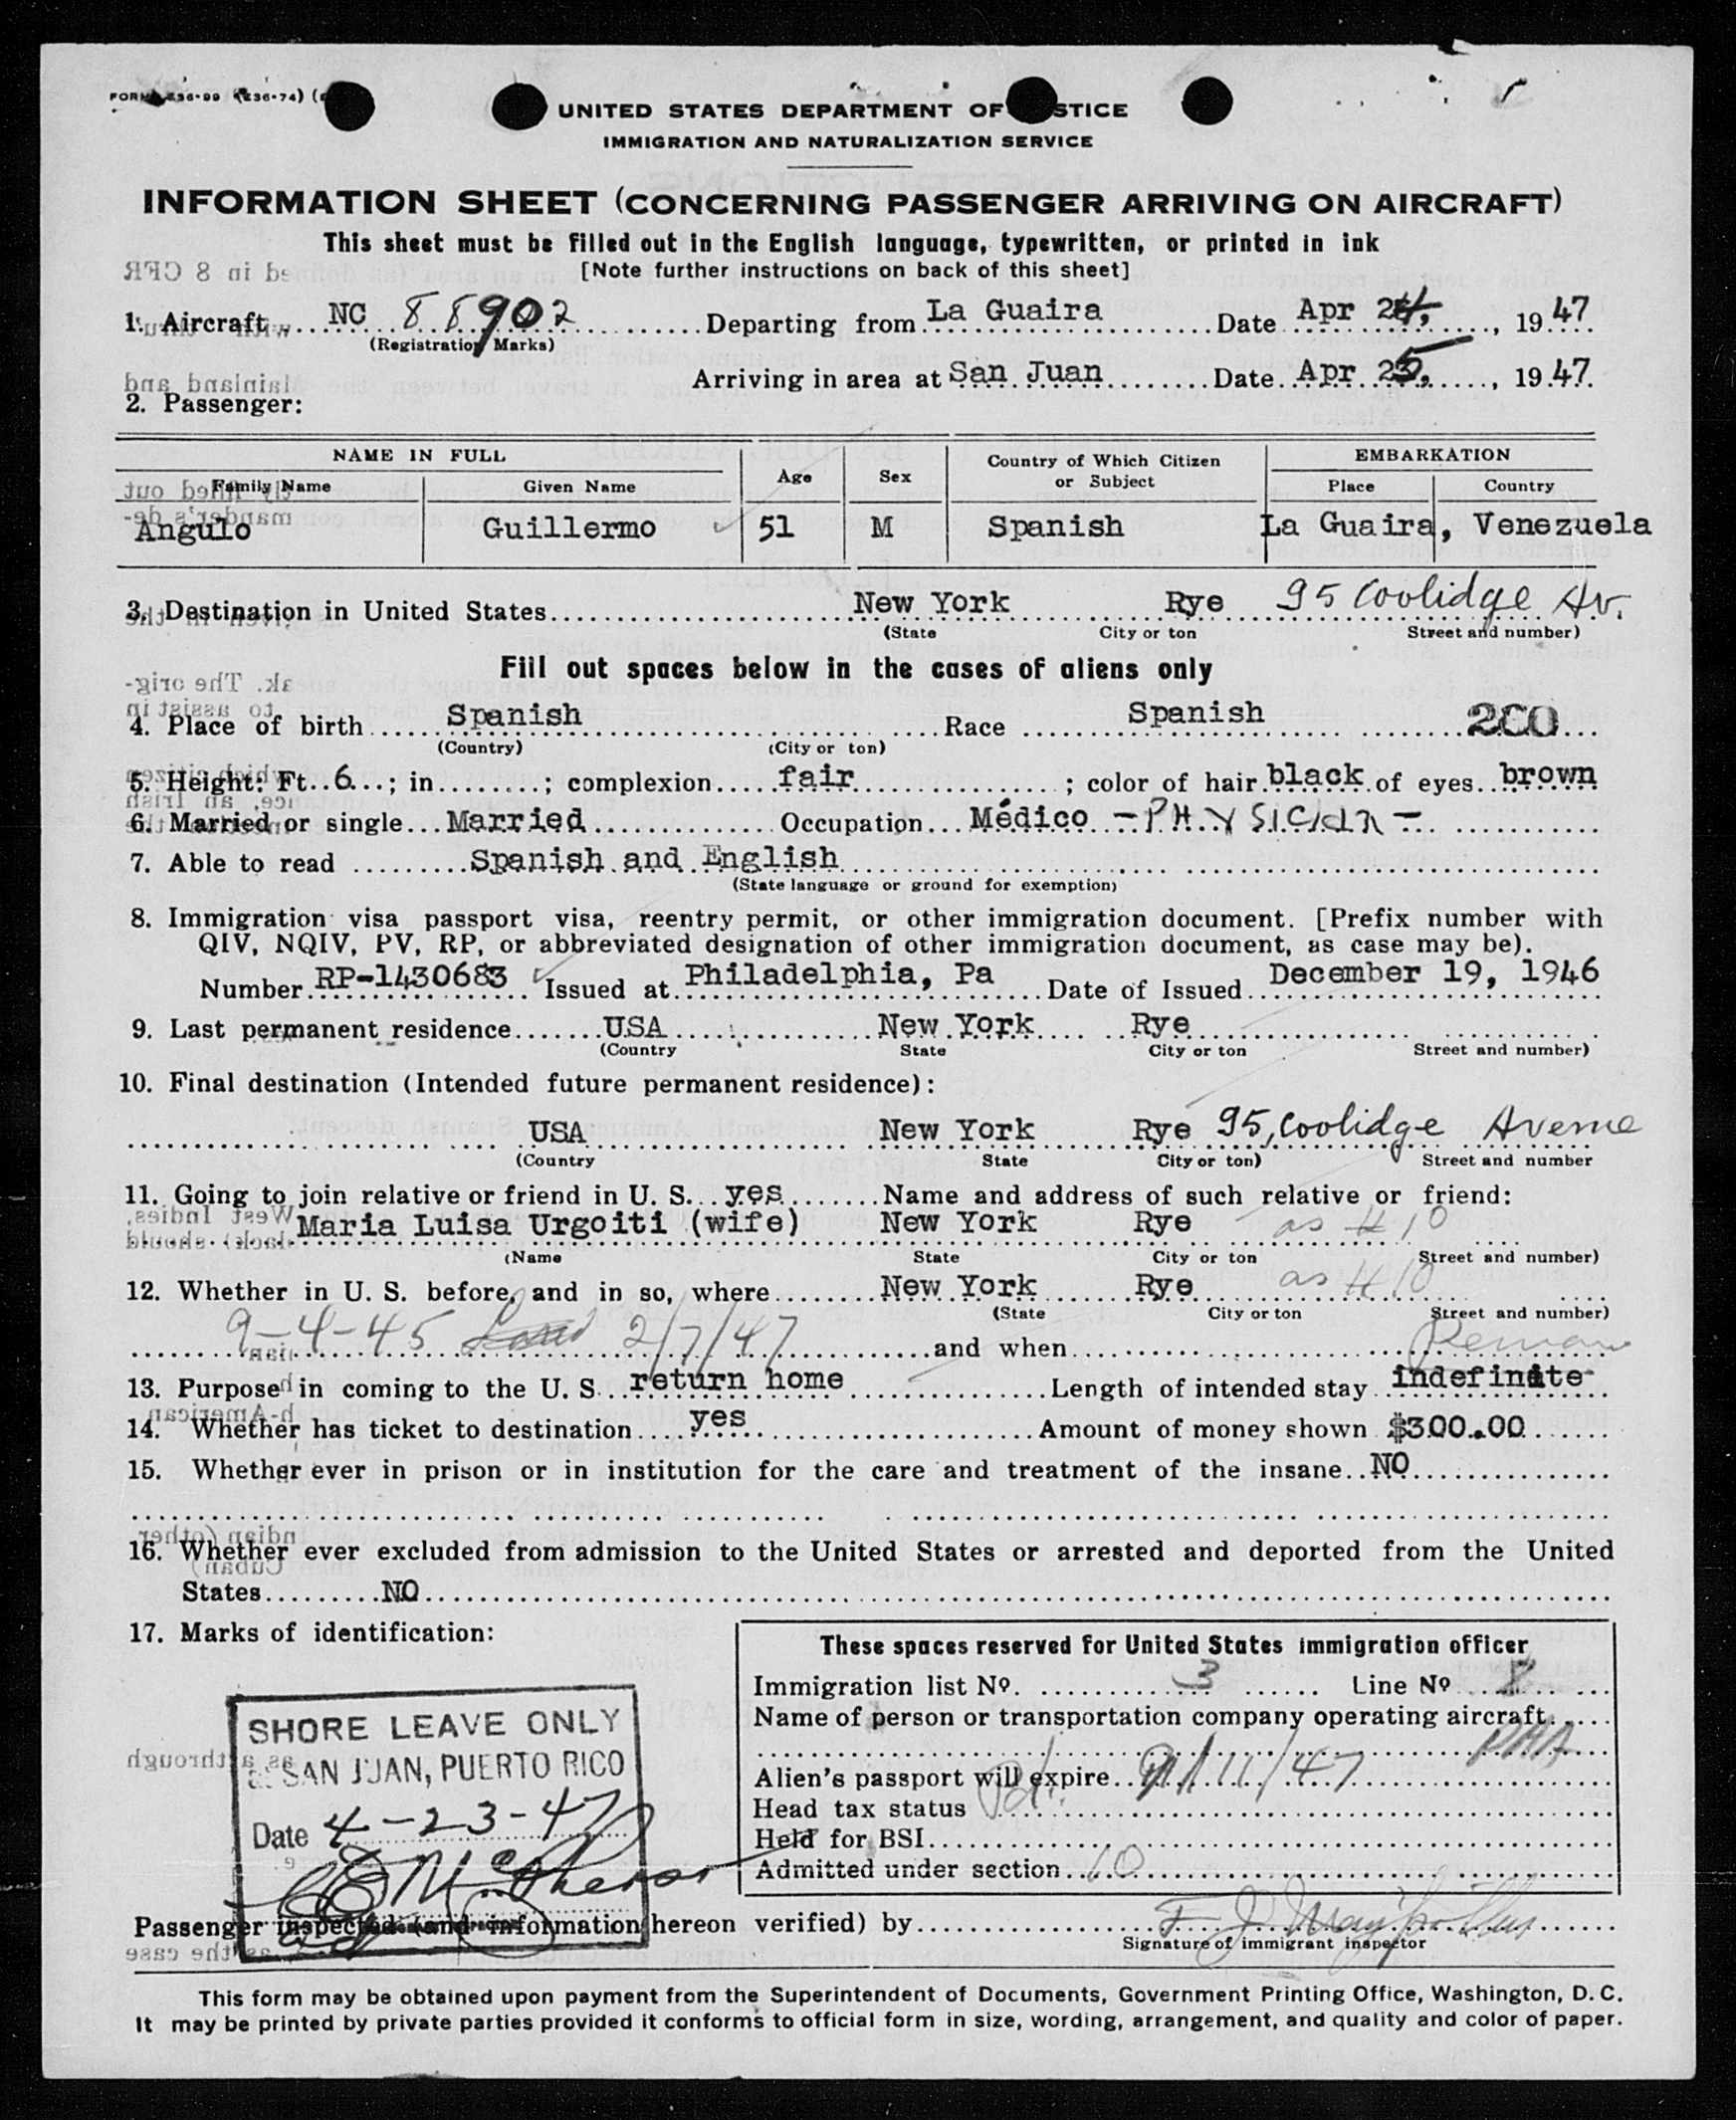 UNITED STATES DEPARTMENT OF STICE
IMMIGRATION AND NATURALIZATION SERVICE
INFORMATION SHEET (CONCERNING PASSENGER ARRIVING ON AIRCRAFT)
This sheet must be filled out in the English language, typewritten, or printed in ink
[Note further instructions on back of this sheet]
1. Aircraft NC 88902 Departing from La Guaira Date Apr 24, 1947
(Registration Marks)
Arriving in area at San Juan Date Apr 25, 1947
2. Passenger:
NAME IN FULL Age Sex Country of Which Citizen or Subject EMBARKATION
Family Name Given Name Place Country
Angulo Guillermo 51 M Spanish La Guaira, Venezuela
3. Destination in United States New York Rye 95 Coolidge Av.
(State City or ton Street and number)
Fill out spaces below in the cases of aliens only
4. Place of birth Spanish Race Spanish 200
(Country) (City or ton)
5. Height: Ft. 6 ; in ; complexion fair ; color of hair black of eyes brown
6. Married or single Married Occupation Médico - PHYSICIAN -
7. Able to read Spanish and English
(State language or ground for exemption)
8. Immigration visa passport visa, reentry permit, or other immigration document. [Prefix number with
QIV, NQIV, PV, RP, or abbreviated designation of other immigration document, as case may be).
Number RP-1430683 Issued at Philadelphia, Pa Date of Issued December 19, 1946
9. Last permanent residence USA New York Rye
(Country State City or ton Street and number)
10. Final destination (Intended future permanent residence):
USA New York Rye 95, Coolidge Avenue
(Country State City or ton) Street and number
11. Going to join relative or friend in U. S. yes Name and address of such relative or friend:
Maria Luisa Urgoiti (wife) New York Rye as # 10
(Name State City or ton Street and number)
12. Whether in U. S. before, and in so, where New York Rye as # 10
(State City or ton Street and number)
9-4-45 2/7/47 and when
13. Purpose in coming to the U. S. return home Length of intended stay indefinite
14. Whether has ticket to destination yes Amount of money shown $300.00
15. Whether ever in prison or in institution for the care and treatment of the insane NO
16. Whether ever excluded from admission to the United States or arrested and deported from the United
States NO
17. Marks of identification:
SHORE LEAVE ONLY
SAN JUAN, PUERTO RICO
Date 4-23-47
These spaces reserved for United States immigration officer
Immigration list No. 3 Line No 8
Name of person or transportation company operating aircraft
PAA
Alien's passport will expire 9/11/47
Head tax status
Held for BSI
Admitted under section 10
Passenger inspected (and information hereon verified) by
Signature of immigrant inspector
This form may be obtained upon payment from the Superintendent of Documents, Government Printing Office, Washington, D. C.
It may be printed by private parties provided it conforms to official form in size, wording, arrangement, and quality and color of paper.